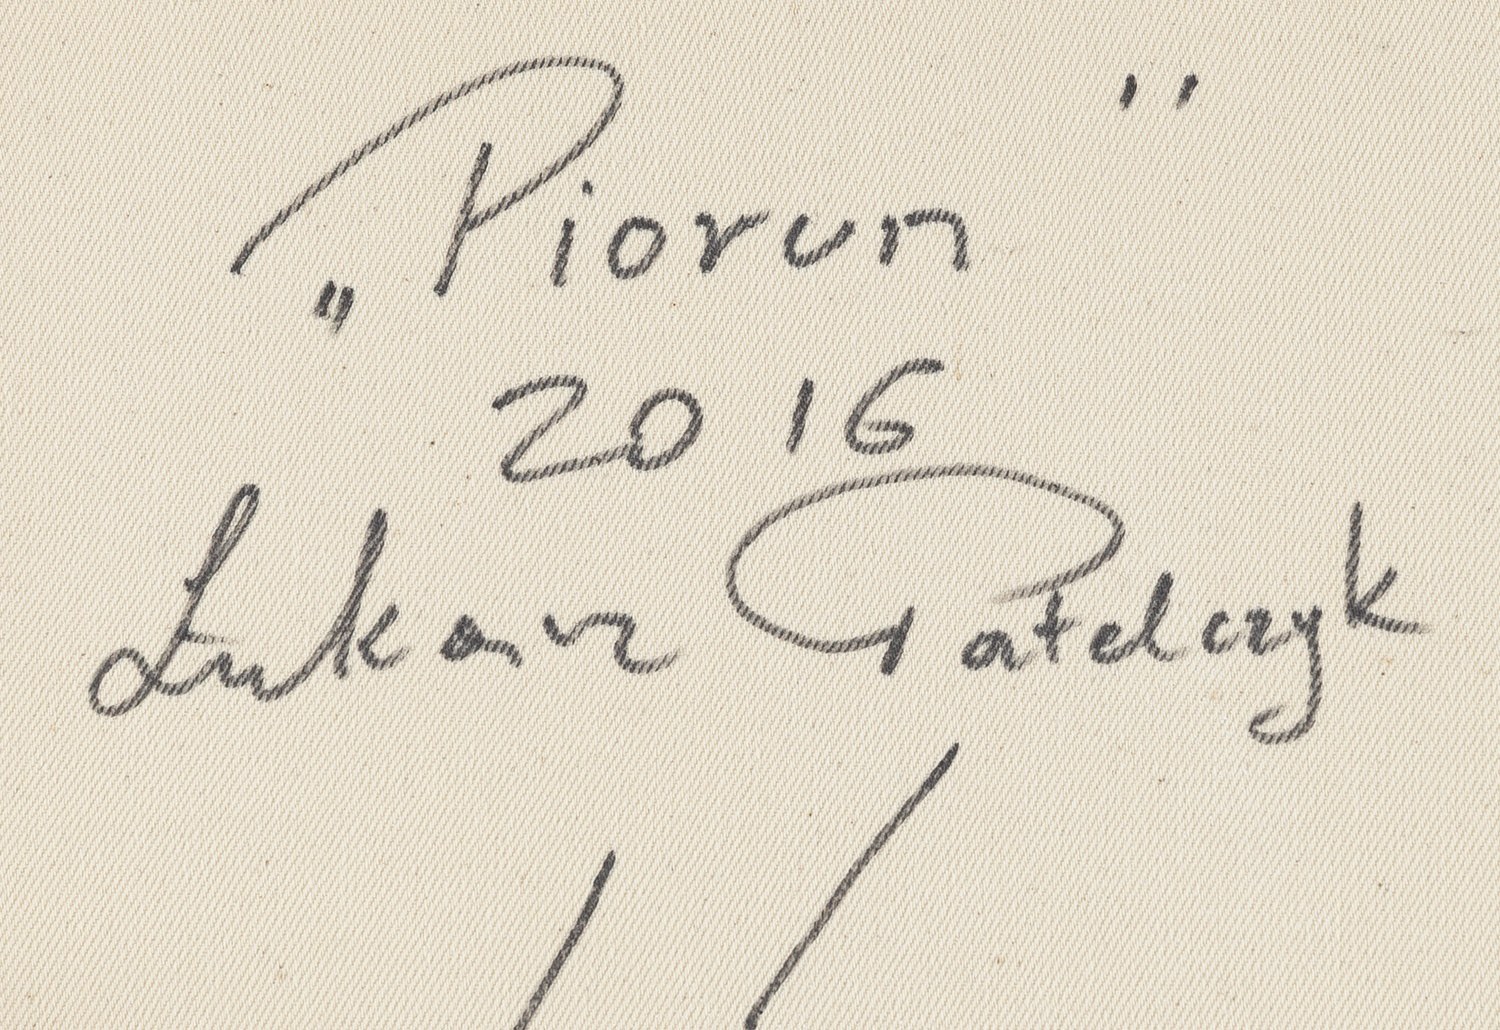 „Piorun"
2016
Łukasz Patelczyk